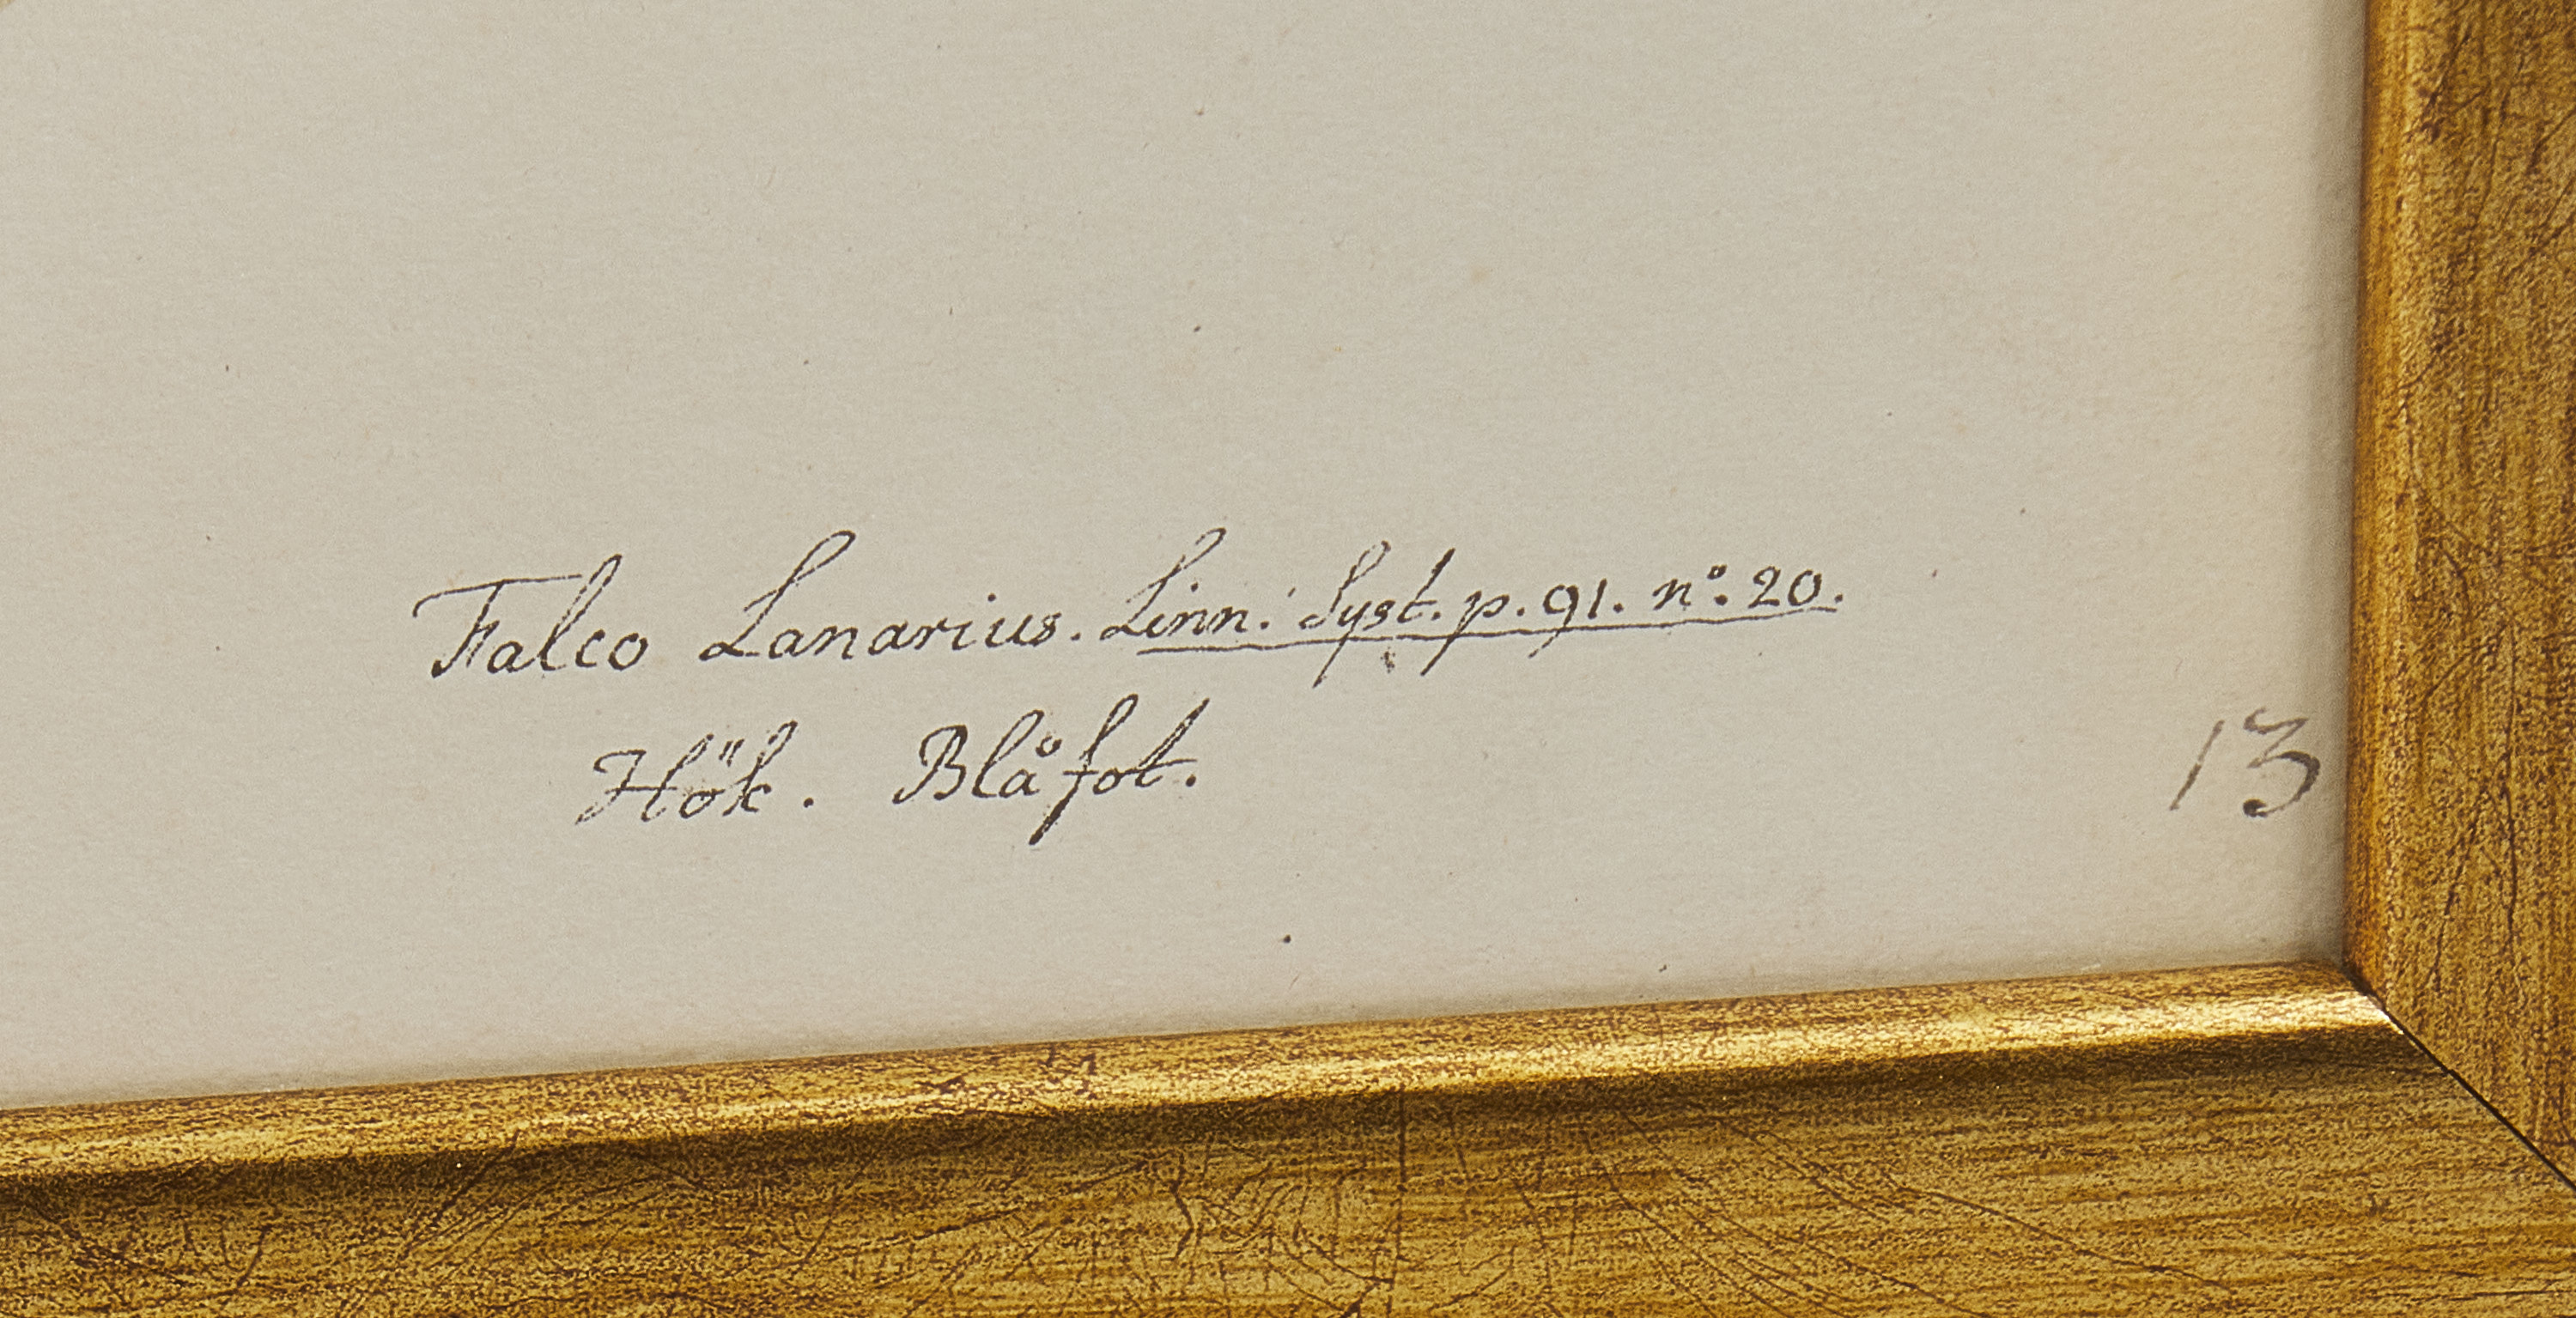 Falco Lanarius. Linn. Syst. p. 91. n° 20.
Hök. Blåfot.
13